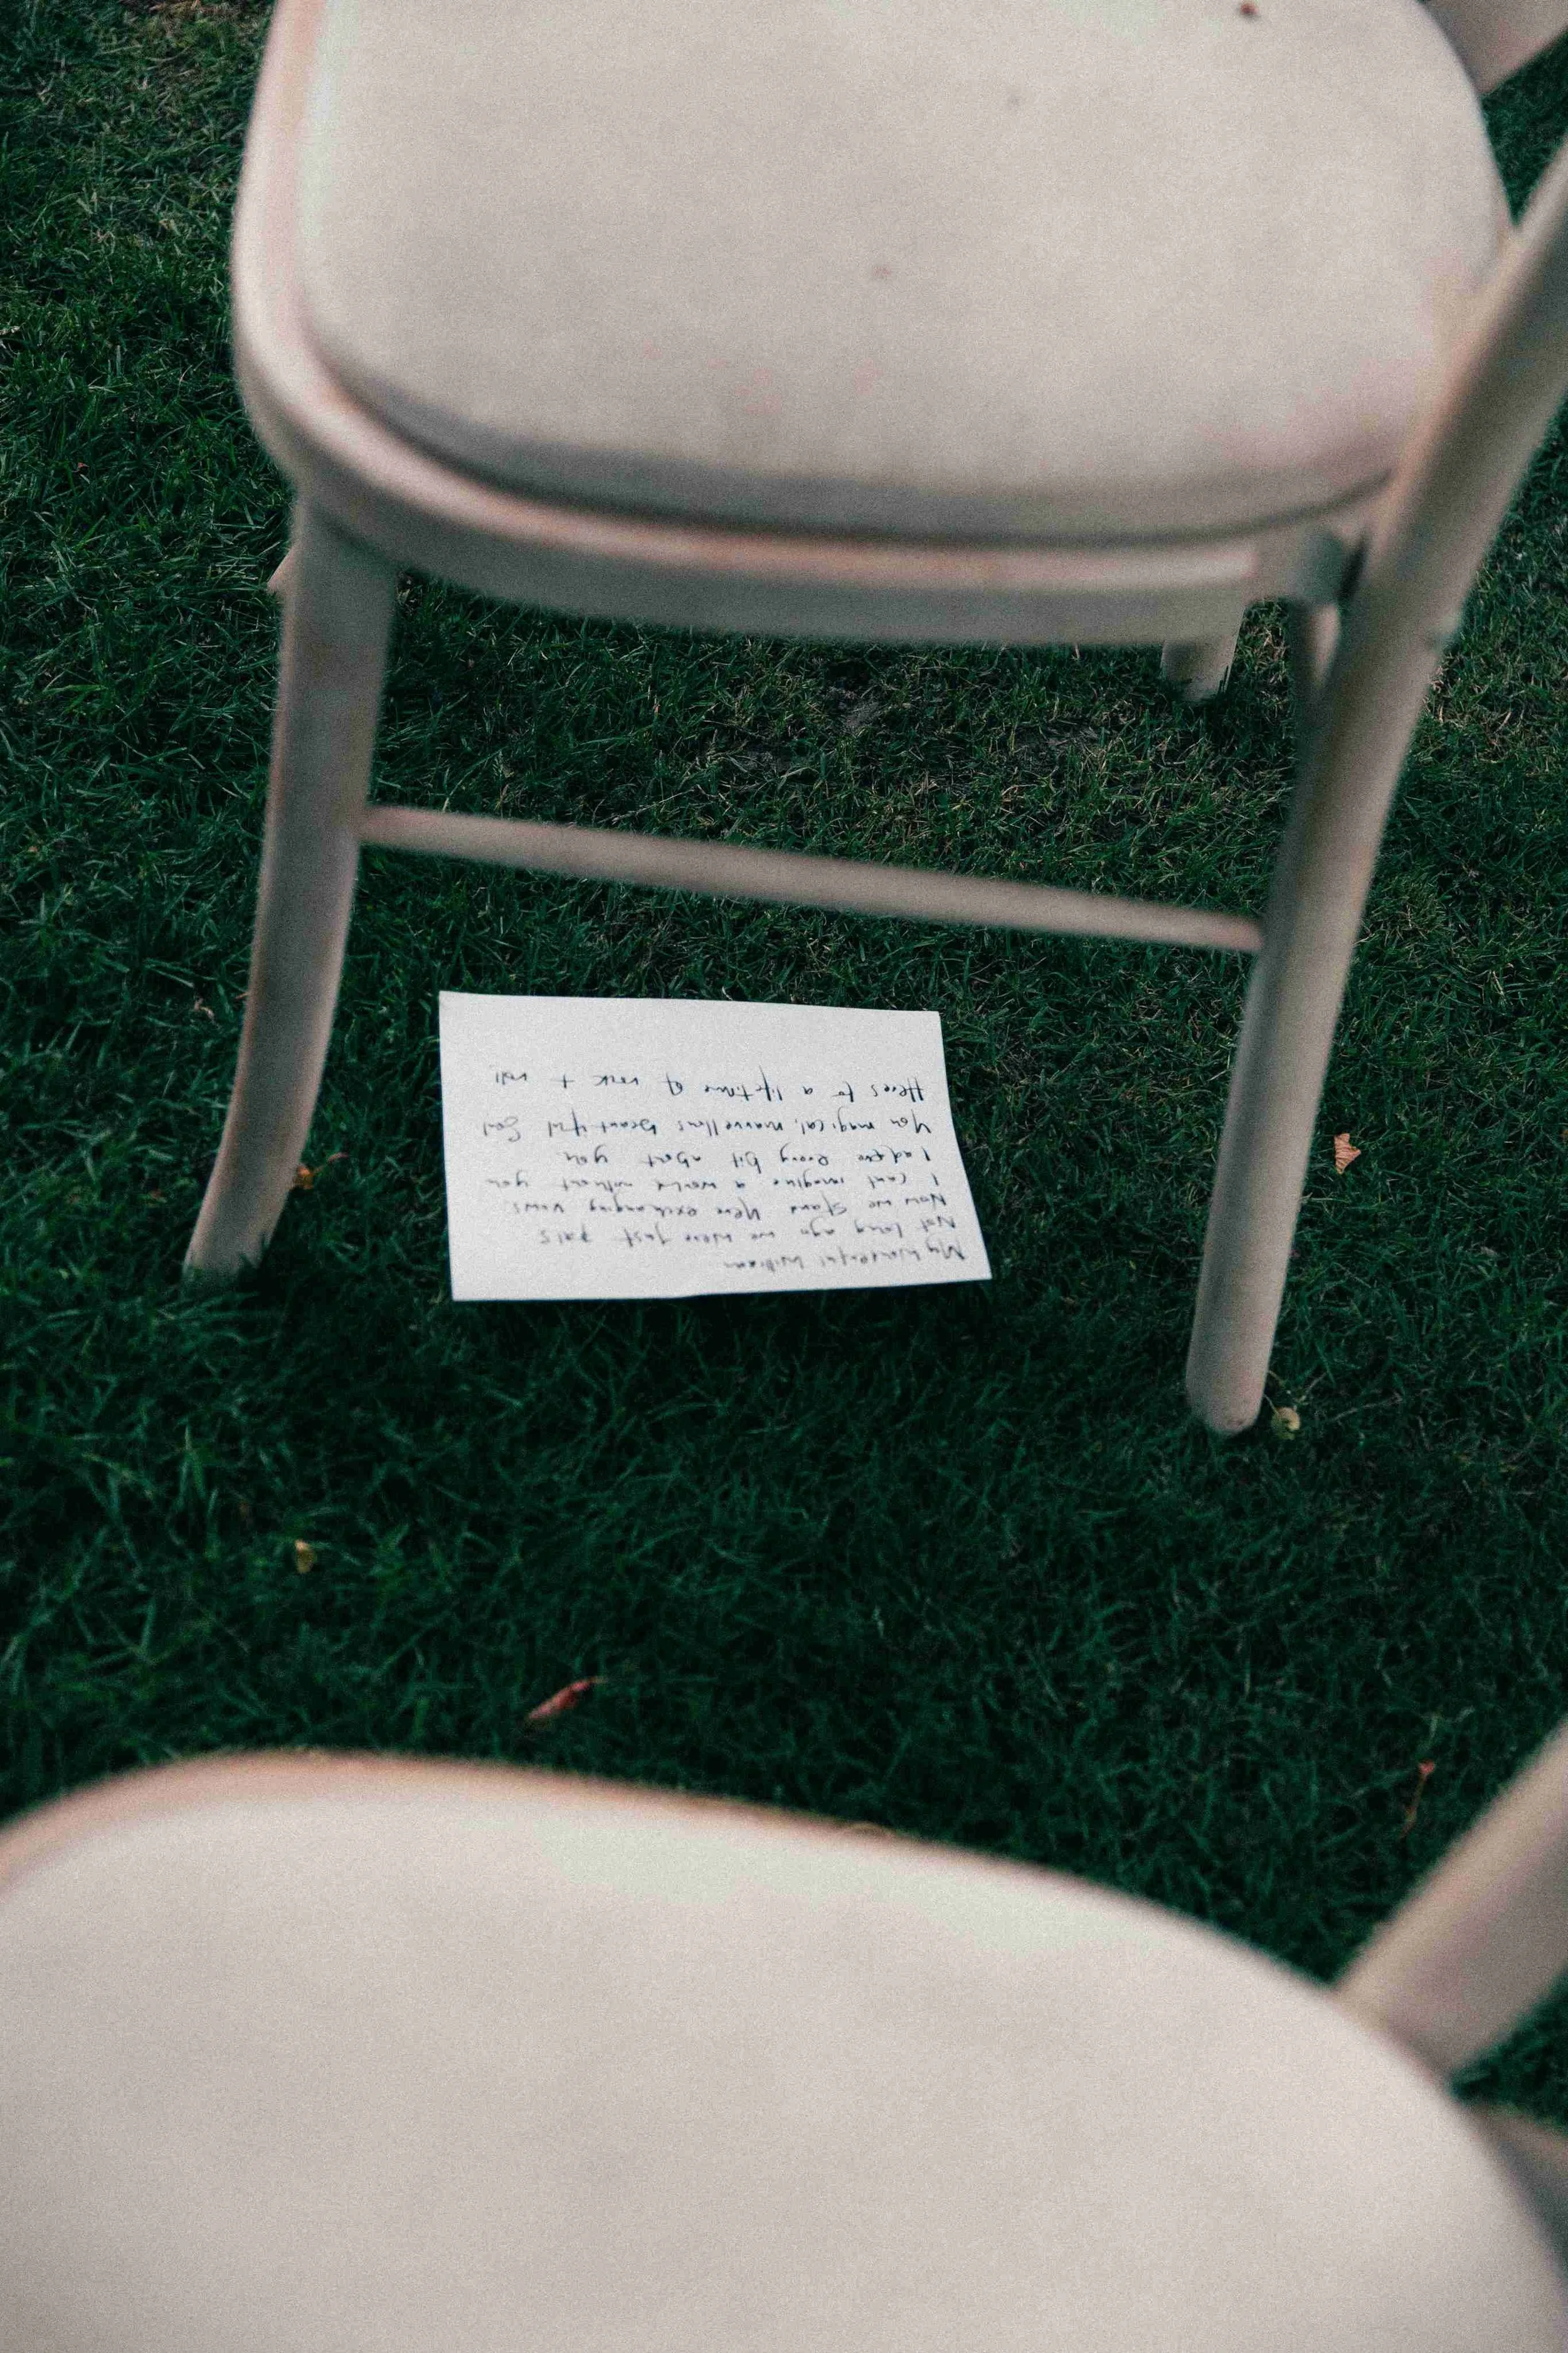 My Wonderful William
Not long ago we were just pals
Now we stand here exchanging vows.
I cant imagine a world without you
I adore every bit about you
You magical, marvellous beautiful Soul
Heres to a lifetime of rock + roll